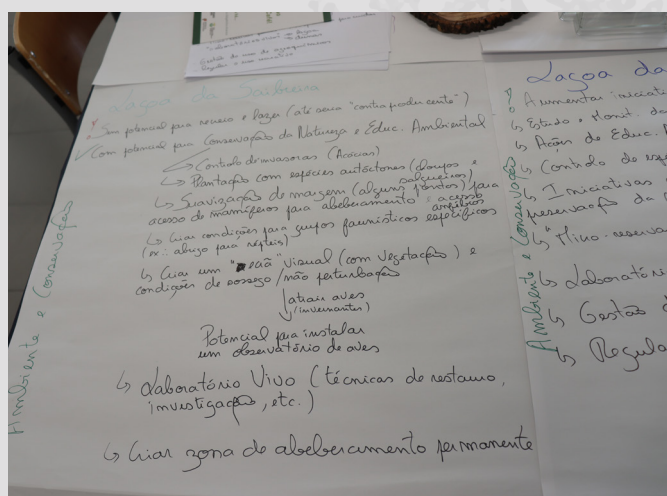 Lagoa da Saibreira
Sem potencial para recreio e lazer (até seria "contraproducente")
Com potencial para Conservação da Natureza e Educ. Ambiental
Controlo de invasoras (Acácias)
Plantação com espécies autóctones (choupos e
salgueiros)
Suavização da margem (alguns pontos) para
acesso de mamíferos para abeberamento e acesso
anfíbios
Criar condições para grupos faunísticos específicos
(ex.: abrigo para répteis)
Criar um "ecrã" visual (com vegetação) e
condições de sossego / não perturbação
atrair aves
(invernantes)
Potencial para instalar
um observatório de aves
Laboratório Vivo (técnicas de restauro,
investigação, etc.)
Criar zona de abeberamento permanente
Ambiente e Conservação
Lagoa da
Aumentar iniciati
Estudo e Monit. da
Ações de Educ.
Controlo de esp
Iniciativas
preservação da
"Micro-reserva
Laboratóri
Gestão
Regula
Ambiente e Conservação